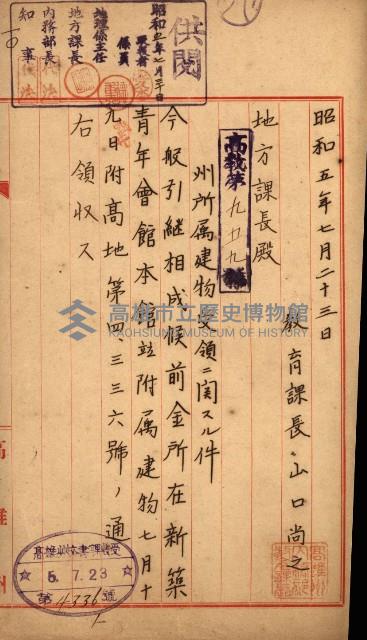 供閲
昭和五年七月三十日
係員
地理係主任
地方課長
内務部長
知事
昭和五年七月二十三日
教育課長 山口尚之
地方課長殿
高教第九五九號
州所属建物受領ニ関スル件
今般引継相成候前金所在新築
青年會館本館竝附属建物七月十
九日附高地第四三三六號ノ通
右領収ス
高雄市立歷史博物館
KAOHSIUNG MUSEUM OF HISTORY
5. 7. 23
第4336號
高雄州